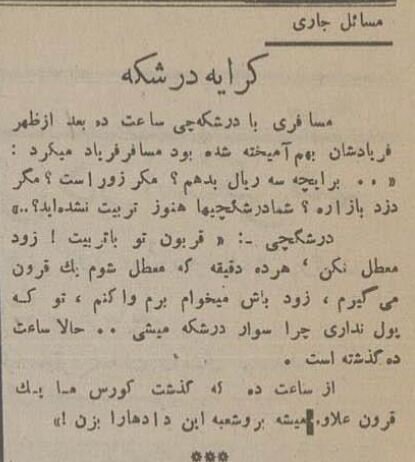 مسائل جاری
کرایه درشکه
مسافری با درشکه‌چی ساعت ده بعد ازظهر
فریادشان بهم آمیخته شده بود مسافر فریاد میکرد :
« .. برایچه سه ریال بدهم ؟ مکر زور است ؟ مگر
دزد بازاره ؟ شمادرشگچیها هنوز تربیت نشده‌اید؟..»
درشگچی -: « قربون تو باتربیت ! زود
معطل نکن ، هرده دقیقه که معطل شوم یك قرون
می گیرم ، زود باش میخوام برم واکنم ، تو کـه
پول نداری چرا سوار درشکه میشی .. حالا ساعت
ده گذشته است .
از ساعت ده که گذشت کورس مـا یـك
قرون علاوه میشه بروشعبه این دادهارا بزن !»
***